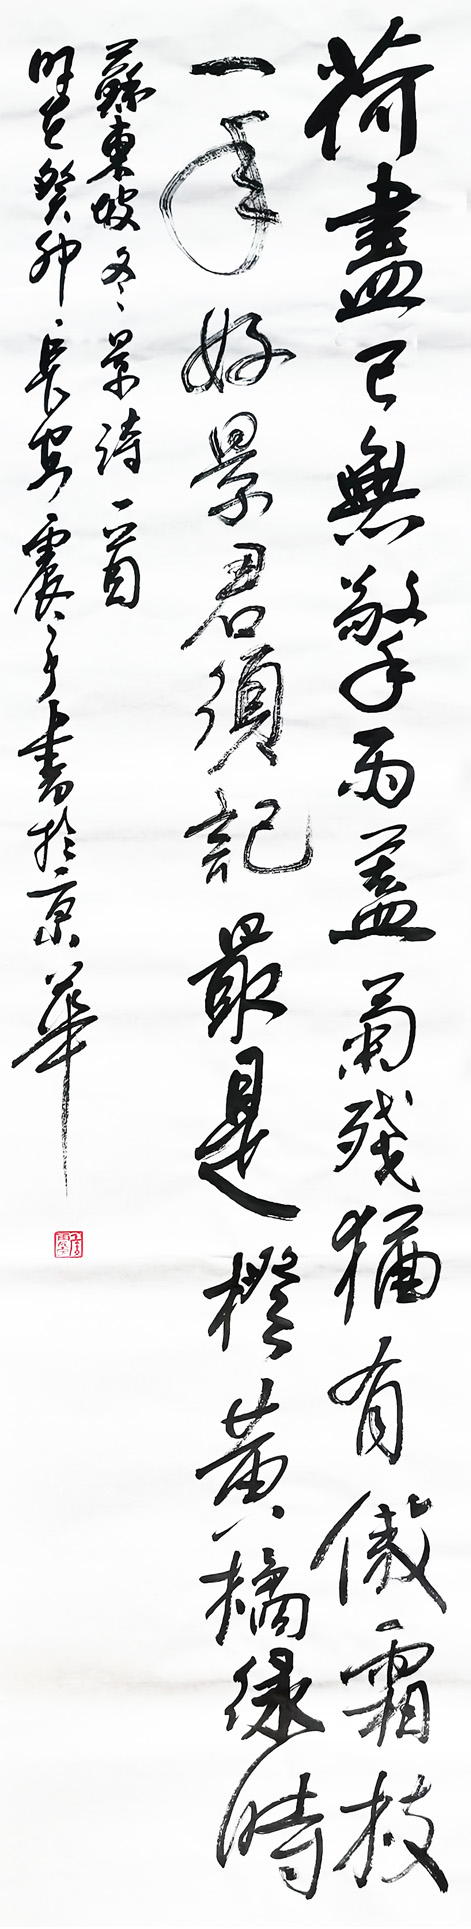 荷盡已無擎雨蓋菊殘猶有傲霜枝
一年好景君須記最是橙黄橘綠時
蘇東坡冬景詩一首
時在癸卯長安震書於京華